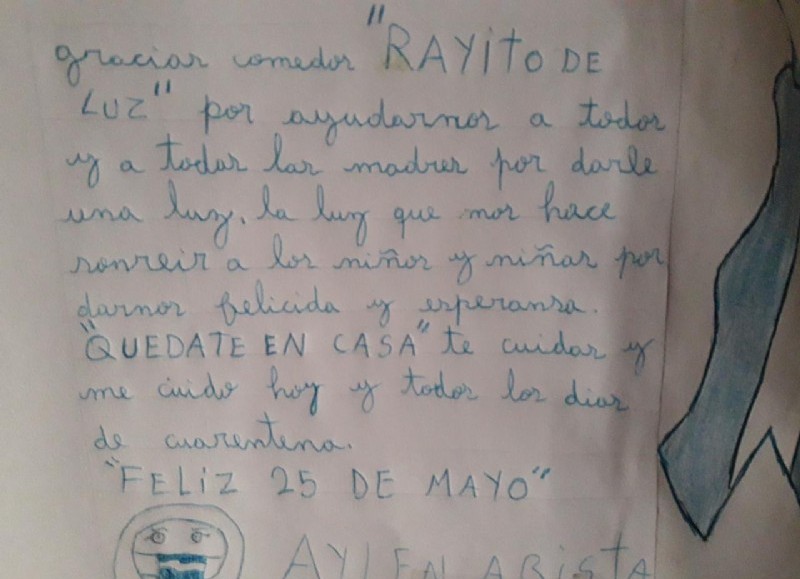 gracias comedor "RAYITO DE
LUZ" por ayudarnos a todos
y a todas las madres por darle
una luz, la luz que nos hace
sonreir a los niños y niñas por
darnos felicida y esperansa.
"QUEDATE EN CASA" te cuidas y
me cuido hoy y todos los dias
de cuarentena.
"FELIZ 25 DE MAYO"
AYLEN ARISTA